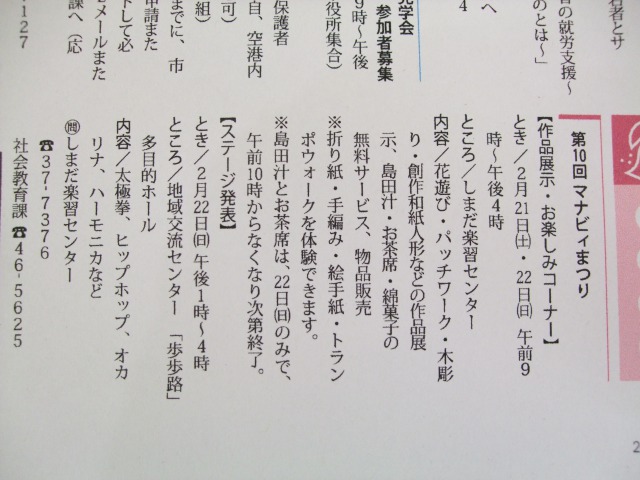 石者とサ
者の就労支援～
のとは～」
へ
4
見学会
参加者募集
9時～午後
役所集合）
保護者
白、空港内
可）
組）
までに、市
申請また
トして必
Eメールまた
課へ（応
127
第10回 マナビィまつり
【作品展示・お楽しみコーナー】
とき／2月21日㈯・22日㈰ 午前9
時～午後4時
ところ／しまだ楽習センター
内容／花遊び・パッチワーク・木彫
り・創作和紙人形などの作品展
示、島田汁・お茶席・綿菓子の
無料サービス、物品販売
※折り紙・手編み・絵手紙・トラン
ポウォークを体験できます。
※島田汁とお茶席は、22日㈰のみで、
午前10時からなくなり次第終了。
【ステージ発表】
とき／2月22日㈰ 午後1時～4時
ところ／地域交流センター 「歩歩路」
多目的ホール
内容／太極拳、ヒップホップ、オカ
リナ、ハーモニカなど
㉄しまだ楽習センター
☎37-7376
社会教育課 ☎46-5625
2